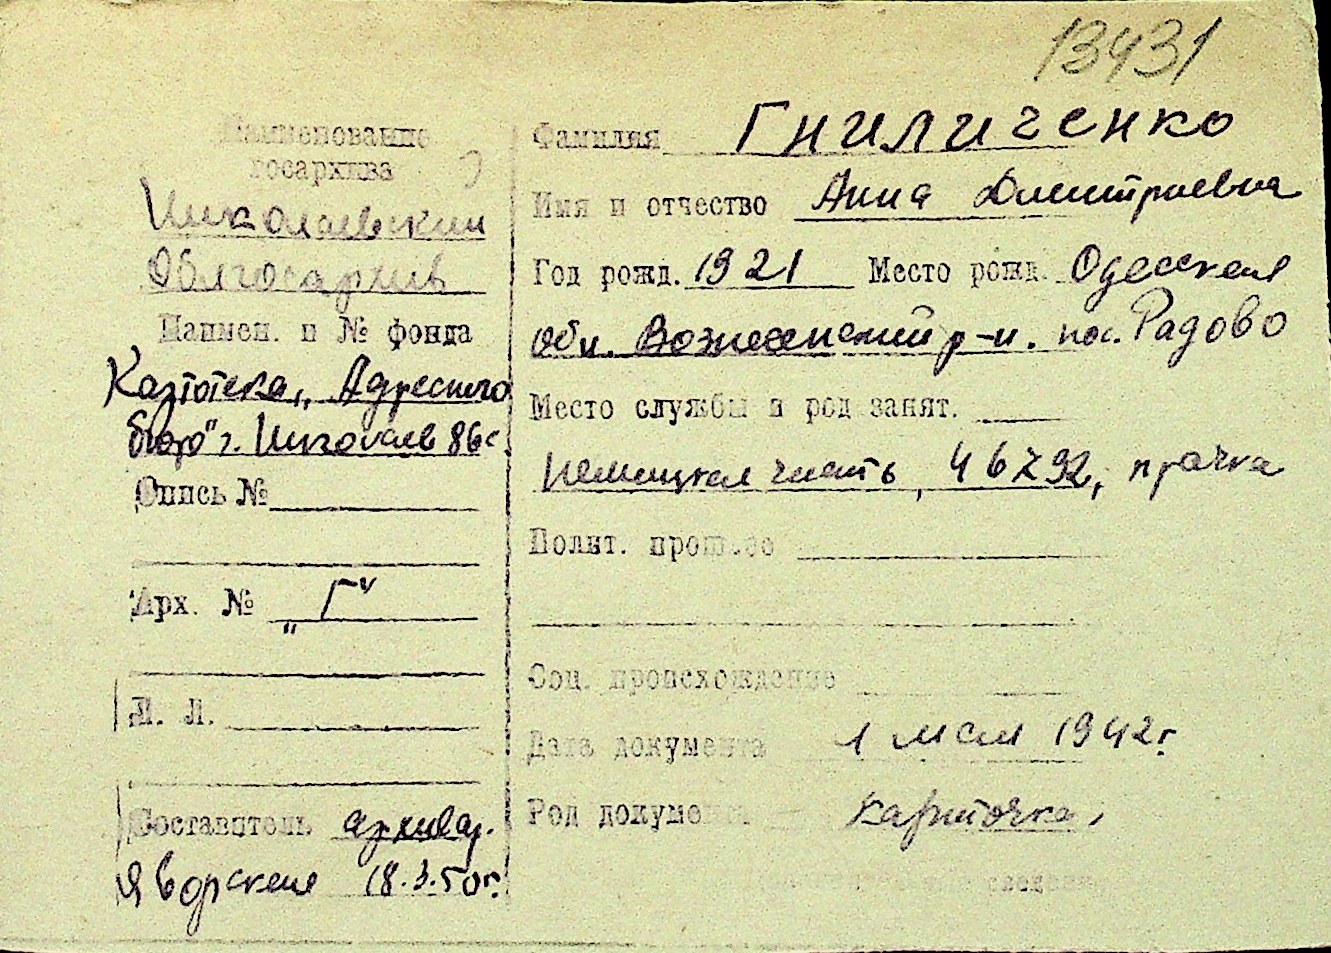 13431
Наименование
госархива
Николаевский
Облгосархив
Наимен. и № фонда
Картотека „Адресного
бюро" г. Николаев 86с
Опись №
Арх. № „Г"
Л. Л.
Составитель архивар.
Яворская 18.3.50г.
Фамилия Гниличенко
Имя и отчество Анна Дмитриевна
Год рожд. 1921 Место рожд. Одесская
обл. Вознесенский р-н. пос. Радово
Место службы и род занят.
Немецкая часть, 46792, прачка
Полит. прошлое
Соц. происхождение
Дата документа 1 мая 1942г.
Род документа карточка,